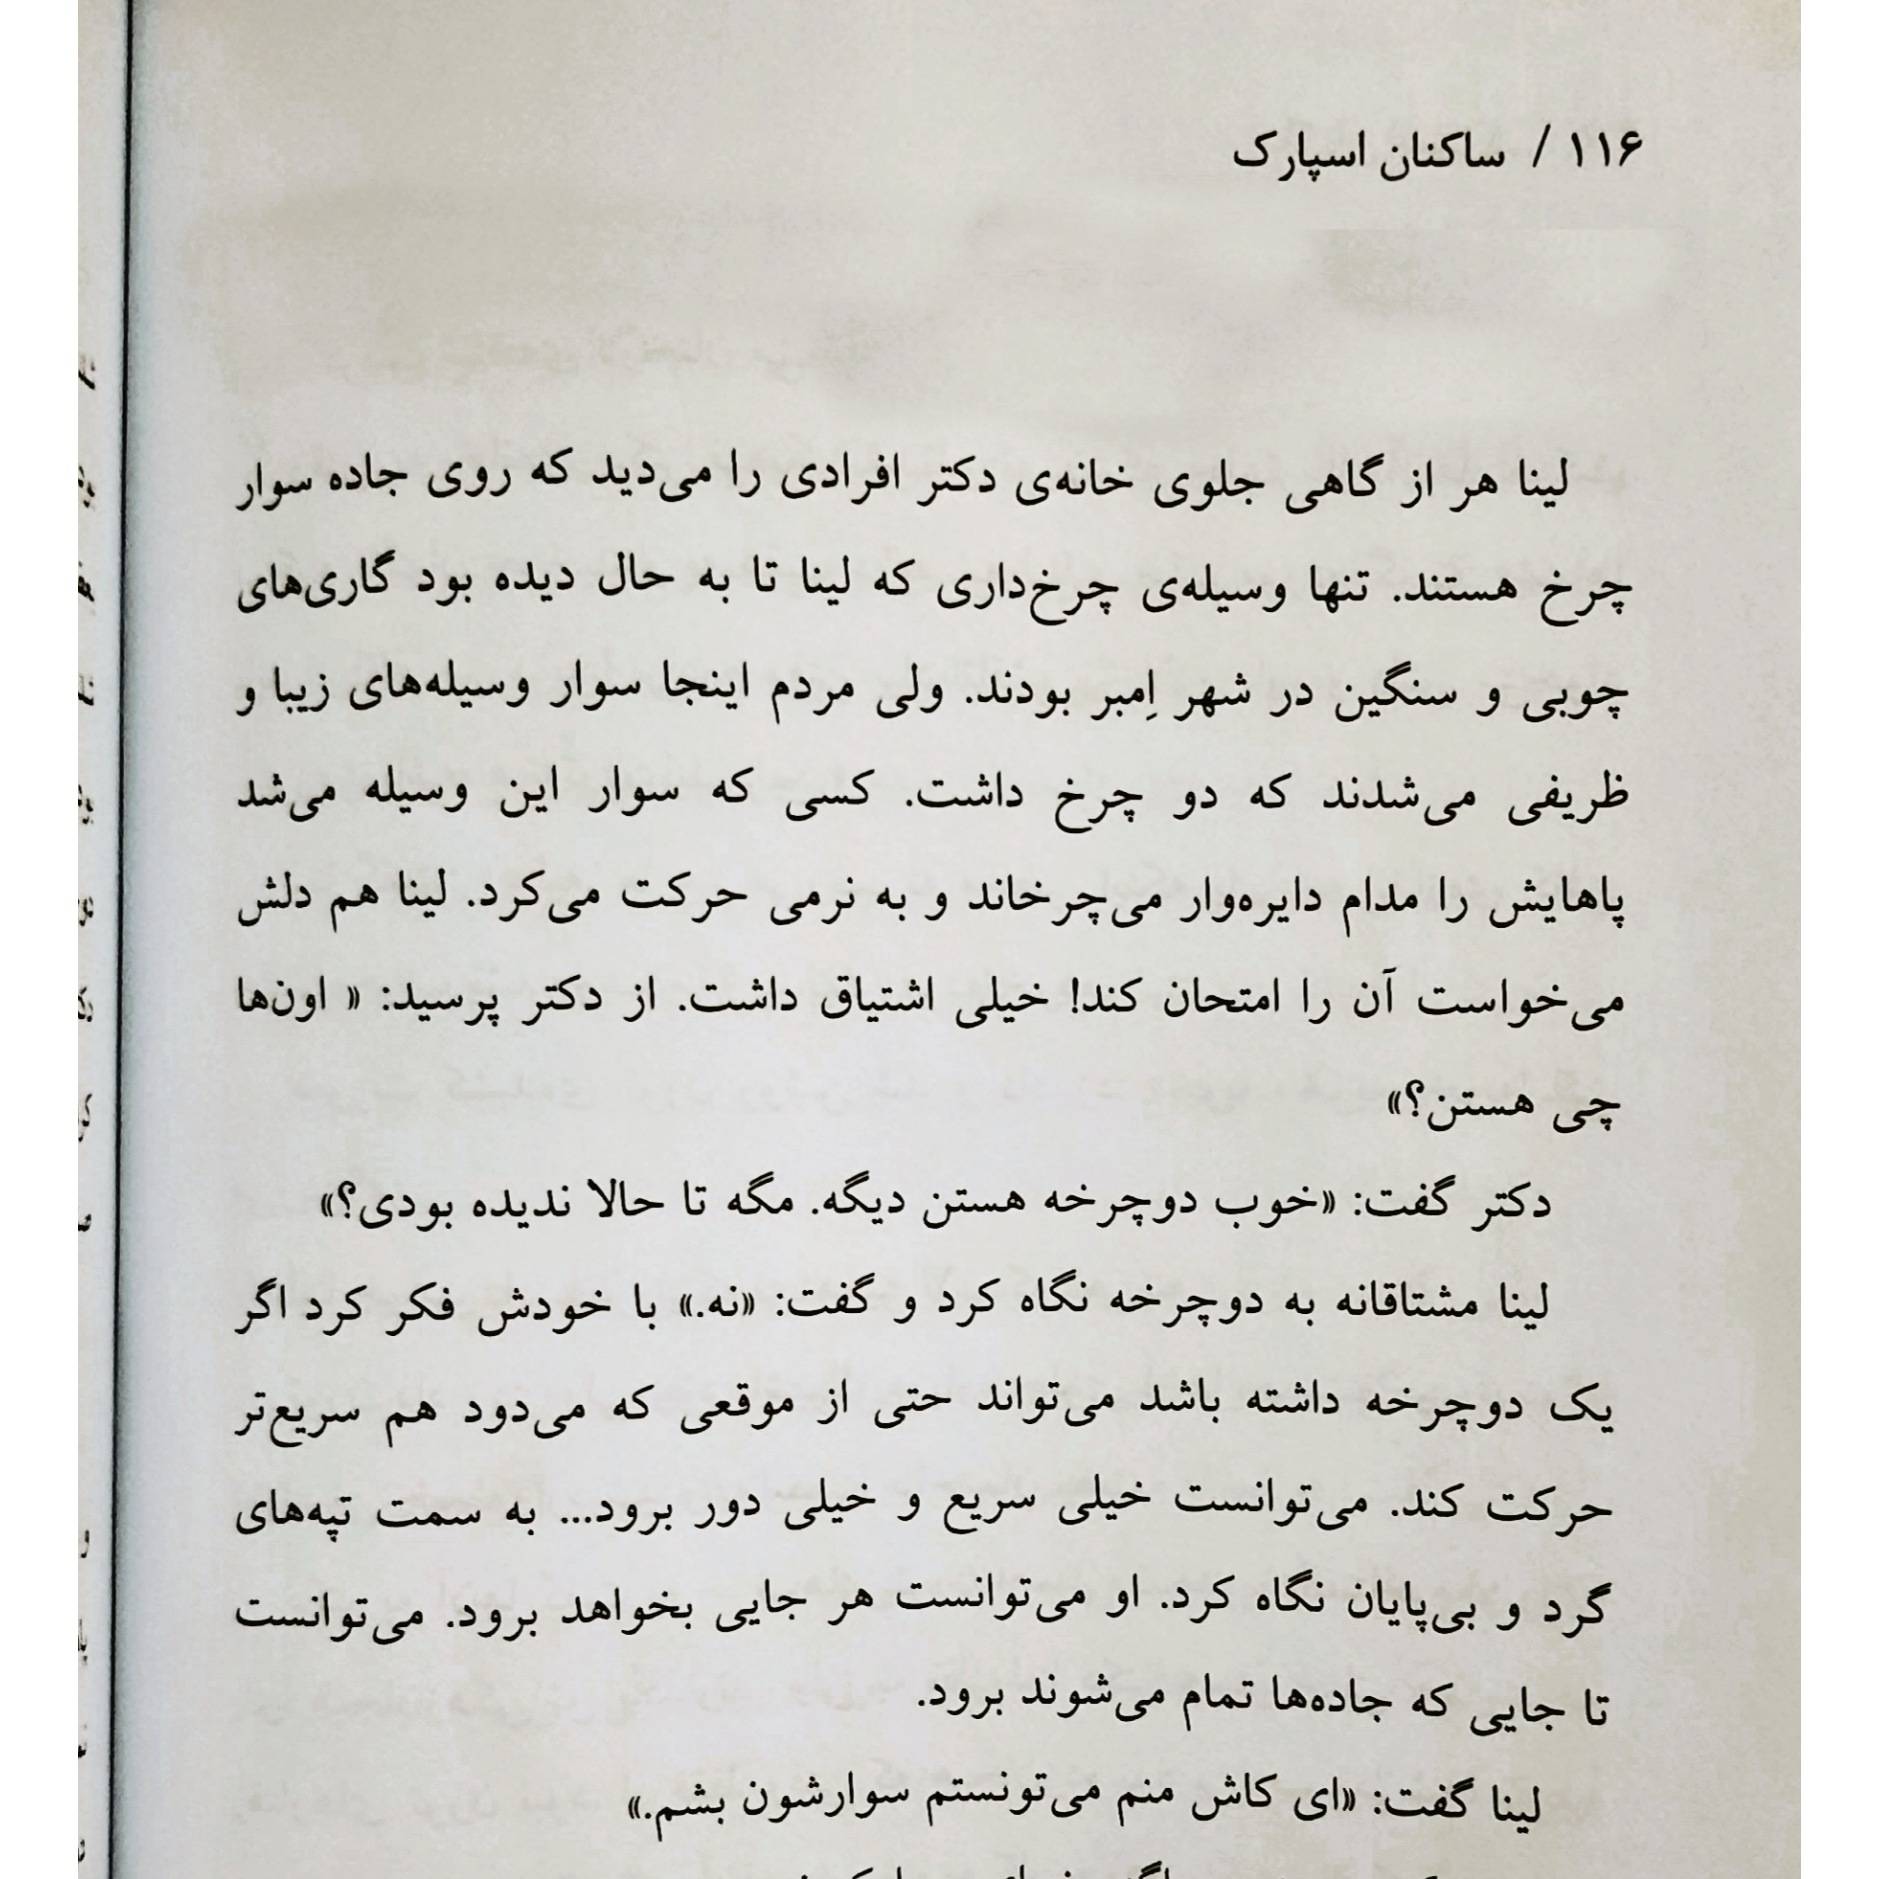 ۱۱۶ / ساکنان اسپارک
لینا هر از گاهی جلوی خانه‌ی دکتر افرادی را می‌دید که روی جاده سوار
چرخ هستند. تنها وسیله‌ی چرخ‌داری که لینا تا به حال دیده بود گاری‌های
چوبی و سنگین در شهر اِمبر بودند. ولی مردم اینجا سوار وسیله‌های زیبا و
ظریفی می‌شدند که دو چرخ داشت. کسی که سوار این وسیله می‌شد
پاهایش را مدام دایره‌وار می‌چرخاند و به نرمی حرکت می‌کرد. لینا هم دلش
می‌خواست آن را امتحان کند! خیلی اشتیاق داشت. از دکتر پرسید: « اون‌ها
چی هستن؟»
دکتر گفت: «خوب دوچرخه هستن دیگه. مگه تا حالا ندیده بودی؟»
لینا مشتاقانه به دوچرخه نگاه کرد و گفت: «نه.» با خودش فکر کرد اگر
یک دوچرخه داشته باشد می‌تواند حتی از موقعی که می‌دود هم سریع‌تر
حرکت کند. می‌توانست خیلی سریع و خیلی دور برود... به سمت تپه‌های
گرد و بی‌پایان نگاه کرد. او می‌توانست هر جایی بخواهد برود. می‌توانست
تا جایی که جاده‌ها تمام می‌شوند برود.
لینا گفت: «ای کاش منم می‌تونستم سوارشون بشم.»